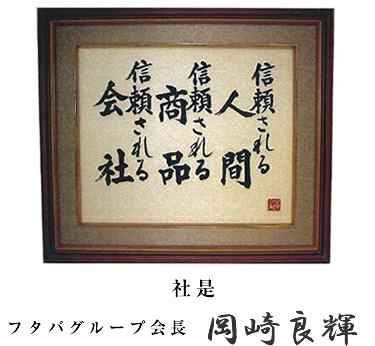 信頼される人間
信頼される商品
信頼される会社
社是
フタバグループ会長 岡崎良輝